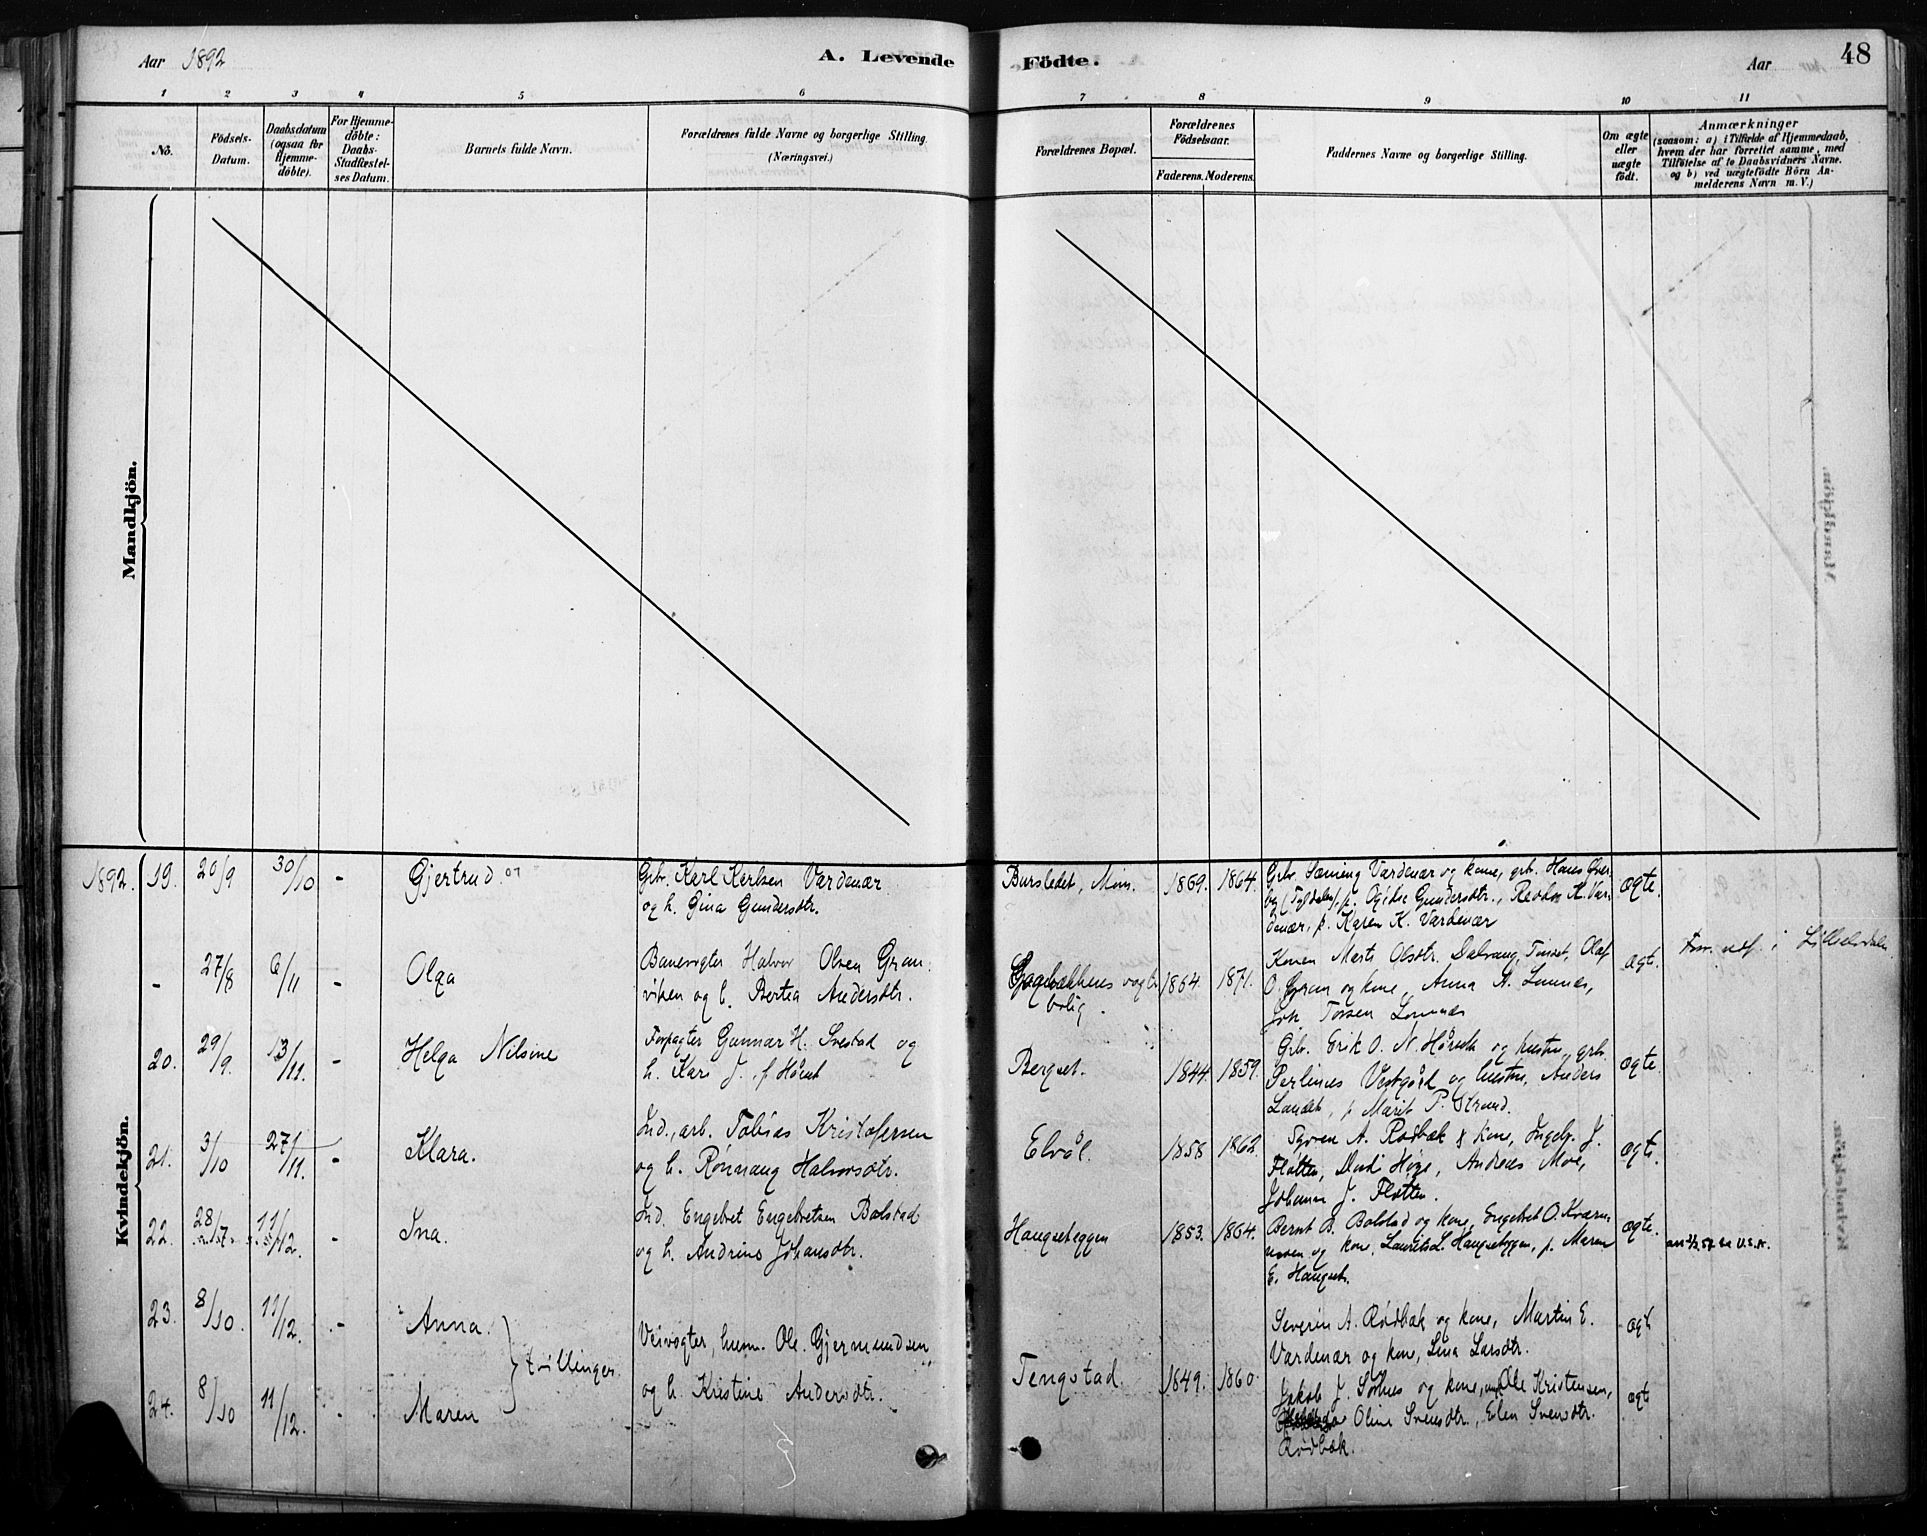 Aar 1892
A. Levende Fødte.
Aar
48
1 2 3 4 5 6 7 8 9 10 11
No.
Födsels-
Datum.
Daabsdatum
(ogsaa for
Hjemme-
döbte).
For Hjemme-
döbte:
Daabs-
Stadfæstel-
ses Datum.
Barnets fulde Navn.
Forældrenes fulde Navne og borgerlige Stilling.
(Næringsvei.)
Forældrenes Bopæl.
Forældrenes
Födselsaar.
Faderens. Moderens.
Faddernes Navne og borgerlige Stilling.
Om ægte
eller
uægte
födt.
Anmærkninger
(saasom: a) i Tilfælde af Hjemmedaab,
hvem der har forrettet samme, med
Tilföielse af to Daabsvidners Navne.
og b) ved uægtefödte Börn An-
melderens Navn m. V.)
Mandkjön.
Kvindekjön.
1892. 19. 20/9 30/10 - Gjertrud
Grb. Karl Karlsen Vardenær
og h. Gina Gundersdtr.
1869. 1864.
Grb. Vardenær og kone, grb. Hans
Gundersdtr., K. Var-
denær, p. Karen K. Vardenær
ægte.
- 27/8 6/11 - Olga
Banevogter Halvor Olsen Gran-
viken og h. Bertea Andersdtr.
bolig.
1864. 1871.
Konen Marte Olsdtr. Dalvang, Tinset, Olaf
O. Gran og kone, Anna A.
ægt.
i Lilleelvdalen
20. 29/9. 13/11. - Helga Nilsine
Forpagter Gunnar H. og
h. Kari J.
Bergset.
1844. 1859.
Grb. Erik O. N. og hustru, grb.
Vestgård og hustru, Anders
p. Marit P. Strand.
ægte.
21. 3/10 27/11. - Klara.
Ind., arb. Tobias Kristofersen
og h. Rønnaug Halvorsdtr.
Elvål.
1858 1862.
A. Rødbæk & kone, Ingebr. J.
Fløtten, Høye, Andreas Moe,
Johanne J. Fløtten.
ægt.
22. 28/7. 11/12. - Ina.
Ind. Engebret Engebretsen Bolstad
og h. Andrine Johansdtr.
Haugseteggen
1853. 1864.
Bernt B. Bolstad og kone, Engebret O. Kværn-
og kone, Haugseteggen, p. Maren
E. Haugset.
ægte.
U.S.A.
23. 8/10. 11/12. - Anna.
tvillinger
Veivogter, husm. Ole Gjermundsen
og h. Kristine Andersdtr.
Tengstad.
1849. 1860.
Severin A. Rødbæk og kone, Martin E.
Vardenær og kone, Lina Larsdtr.
ægt.
24. 8/10 11/12. - Maren
Jakob J. og kone, Ole Kristensen,
Oline Svensdtr., Elen Svensdtr.
Rødbæk.
ægt.